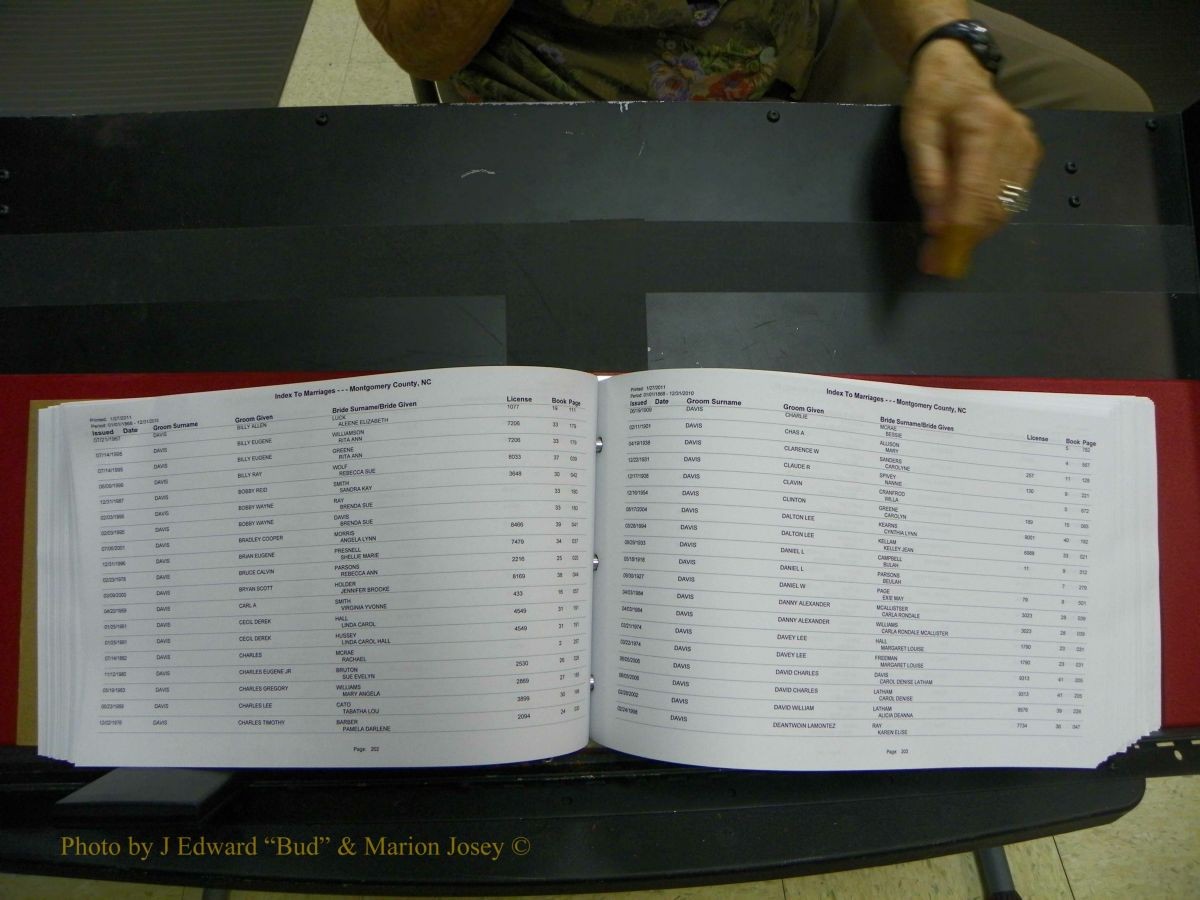 Index To Marriages - - - Montgomery County, NC
Printed: 1/27/2011
Period: 01/01/1868 - 12/31/2010
Issued Date Groom Surname Groom Given Bride Surname/Bride Given License Book Page
07/21/1967 DAVIS BILLY ALLEN LUCK ALEENE ELIZABETH 1077 19 111
07/14/1995 DAVIS BILLY EUGENE WILLIAMSON RITA ANN 7206 33 179
07/14/1995 DAVIS BILLY EUGENE GREENE RITA ANN 7206 33 179
DAVIS BILLY RAY WOLF REBECCA SUE 8033 37
12/31/1987 DAVIS BOBBY REID SMITH SANDRA KAY 3648 30 042
DAVIS BOBBY WAYNE RAY BRENDA SUE 33
DAVIS BOBBY WAYNE DAVIS BRENDA SUE 33
DAVIS BRADLEY COOPER MORRIS ANGELA LYNN 8466 39 041
12/31/1996 DAVIS BRIAN EUGENE PRESNELL SHELLIE MARIE 7479 34 037
DAVIS BRUCE CALVIN PARSONS REBECCA ANN 2216 25
DAVIS BRYAN SCOTT HOLDER JENNIFER BROOKE 8169 38
DAVIS CARL A SMITH VIRGINIA YVONNE 433 16
01/25/1991 DAVIS CECIL DEREK HALL LINDA CAROL 4549 31 191
01/25/1991 DAVIS CECIL DEREK HUSSEY LINDA CAROL HALL 4549 31 191
DAVIS CHARLES MCRAE RACHAEL 2
11/12/1980 DAVIS CHARLES EUGENE JR BRUTON SUE EVELYN 2530 26
DAVIS CHARLES GREGORY WILLIAMS MARY ANGELA 2869 27
DAVIS CHARLES LEE CATO TABATHA LOU 3899 30
DAVIS CHARLES TIMOTHY BARBER PAMELA DARLENE 2094 24
Page: 202
Printed: 1/27/2011
Period: 01/01/1868 - 12/31/2010
Index To Marriages - - - Montgomery County, NC
Issued Date Groom Surname Groom Given Bride Surname/Bride Given License Book Page
06/19/1909 DAVIS CHARLIE MCRAE BESSIE 5
02/11/1901 DAVIS CHAS A ALLISON MARY 4
04/19/1938 DAVIS CLARENCE W SANDERS CAROLYNE 267 11
12/22/1931 DAVIS CLAUDE R SPIVEY NANNIE 130 9 221
12/17/1908 DAVIS CLAVIN CRANFROD WILLA 5
12/16/1954 DAVIS CLINTON GREENE CAROLYN 189 15
DAVIS DALTON LEE KEARNS CYNTHIA LYNN 9001 40
DAVIS DALTON LEE KELLAM KELLEY JEAN 33 021
DAVIS DANIEL L CAMPBELL BULAH 11 9
DAVIS DANIEL L PARSONS BEULAH 7
DAVIS DANIEL W PAGE EXIE MAY 79 8 501
04/03/1984 DAVIS DANNY ALEXANDER MCALLISTSER CARLA RONDALE 3023 28 039
04/03/1984 DAVIS DANNY ALEXANDER WILLIAMS CARLA RONDALE MCALISTER 3023 28 039
DAVIS DAVEY LEE HALL MARGARET LOUISE 1790 23 031
DAVIS DAVEY LEE FREEMAN MARGARET LOUISE 1790 23 031
DAVIS DAVID CHARLES DAVIS CAROL DENISE LATHAM 9313 41 205
DAVIS DAVID CHARLES LATHAM CAROL DENISE 9313 41 205
DAVIS DAVID WILLIAM LATHAM ALICIA DEANNA 39
DAVIS DEANTWOIN LAMONTEZ RAY KAREN ELISE 7734 36 047
Page: 203
Photo by J Edward “Bud” & Marion Josey ©